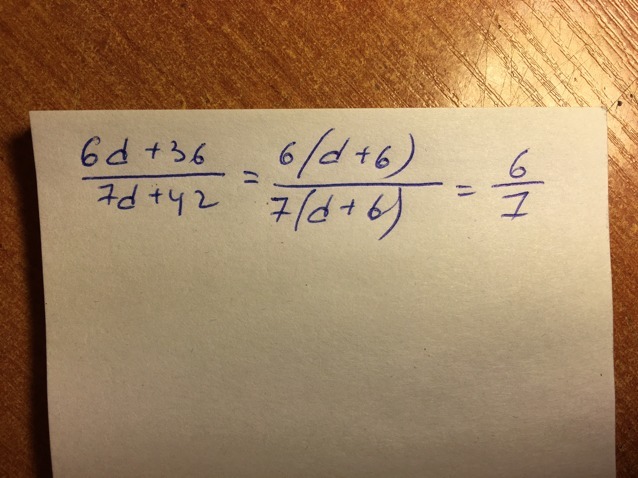 (6d+36)/(7d+42) = 6(d+6)/7(d+6) = 6/7